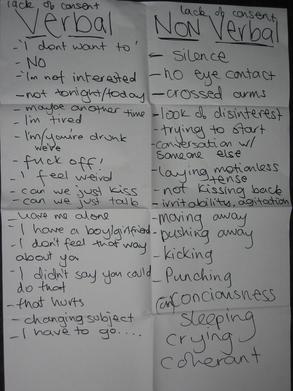 lack of consent
Verbal
- 'I dont want to'
- NO
- 'Im not interested
- not tonight/today
- maybe another time
- I'm tired
- I'm/you're drunk
we're
- fuck off!
- I feel weird
- can we just kiss
- can we just talk
- leave me alone
- I have a boy/girlfriend
- I don't feel that way
about you
- I didn't say you could
do that
- that hurts
- changing subject
- I have to go....
lack of consent
Non Verbal
- silence
- no eye contact
- crossed arms
- look of disinterest
- trying to start
conversation w/
someone else
- laying motionless
tense
- not kissing back
- irritability, agitation
- moving away
- pushing away
- kicking
- Punching
conciousness
sleeping
crying
coherant